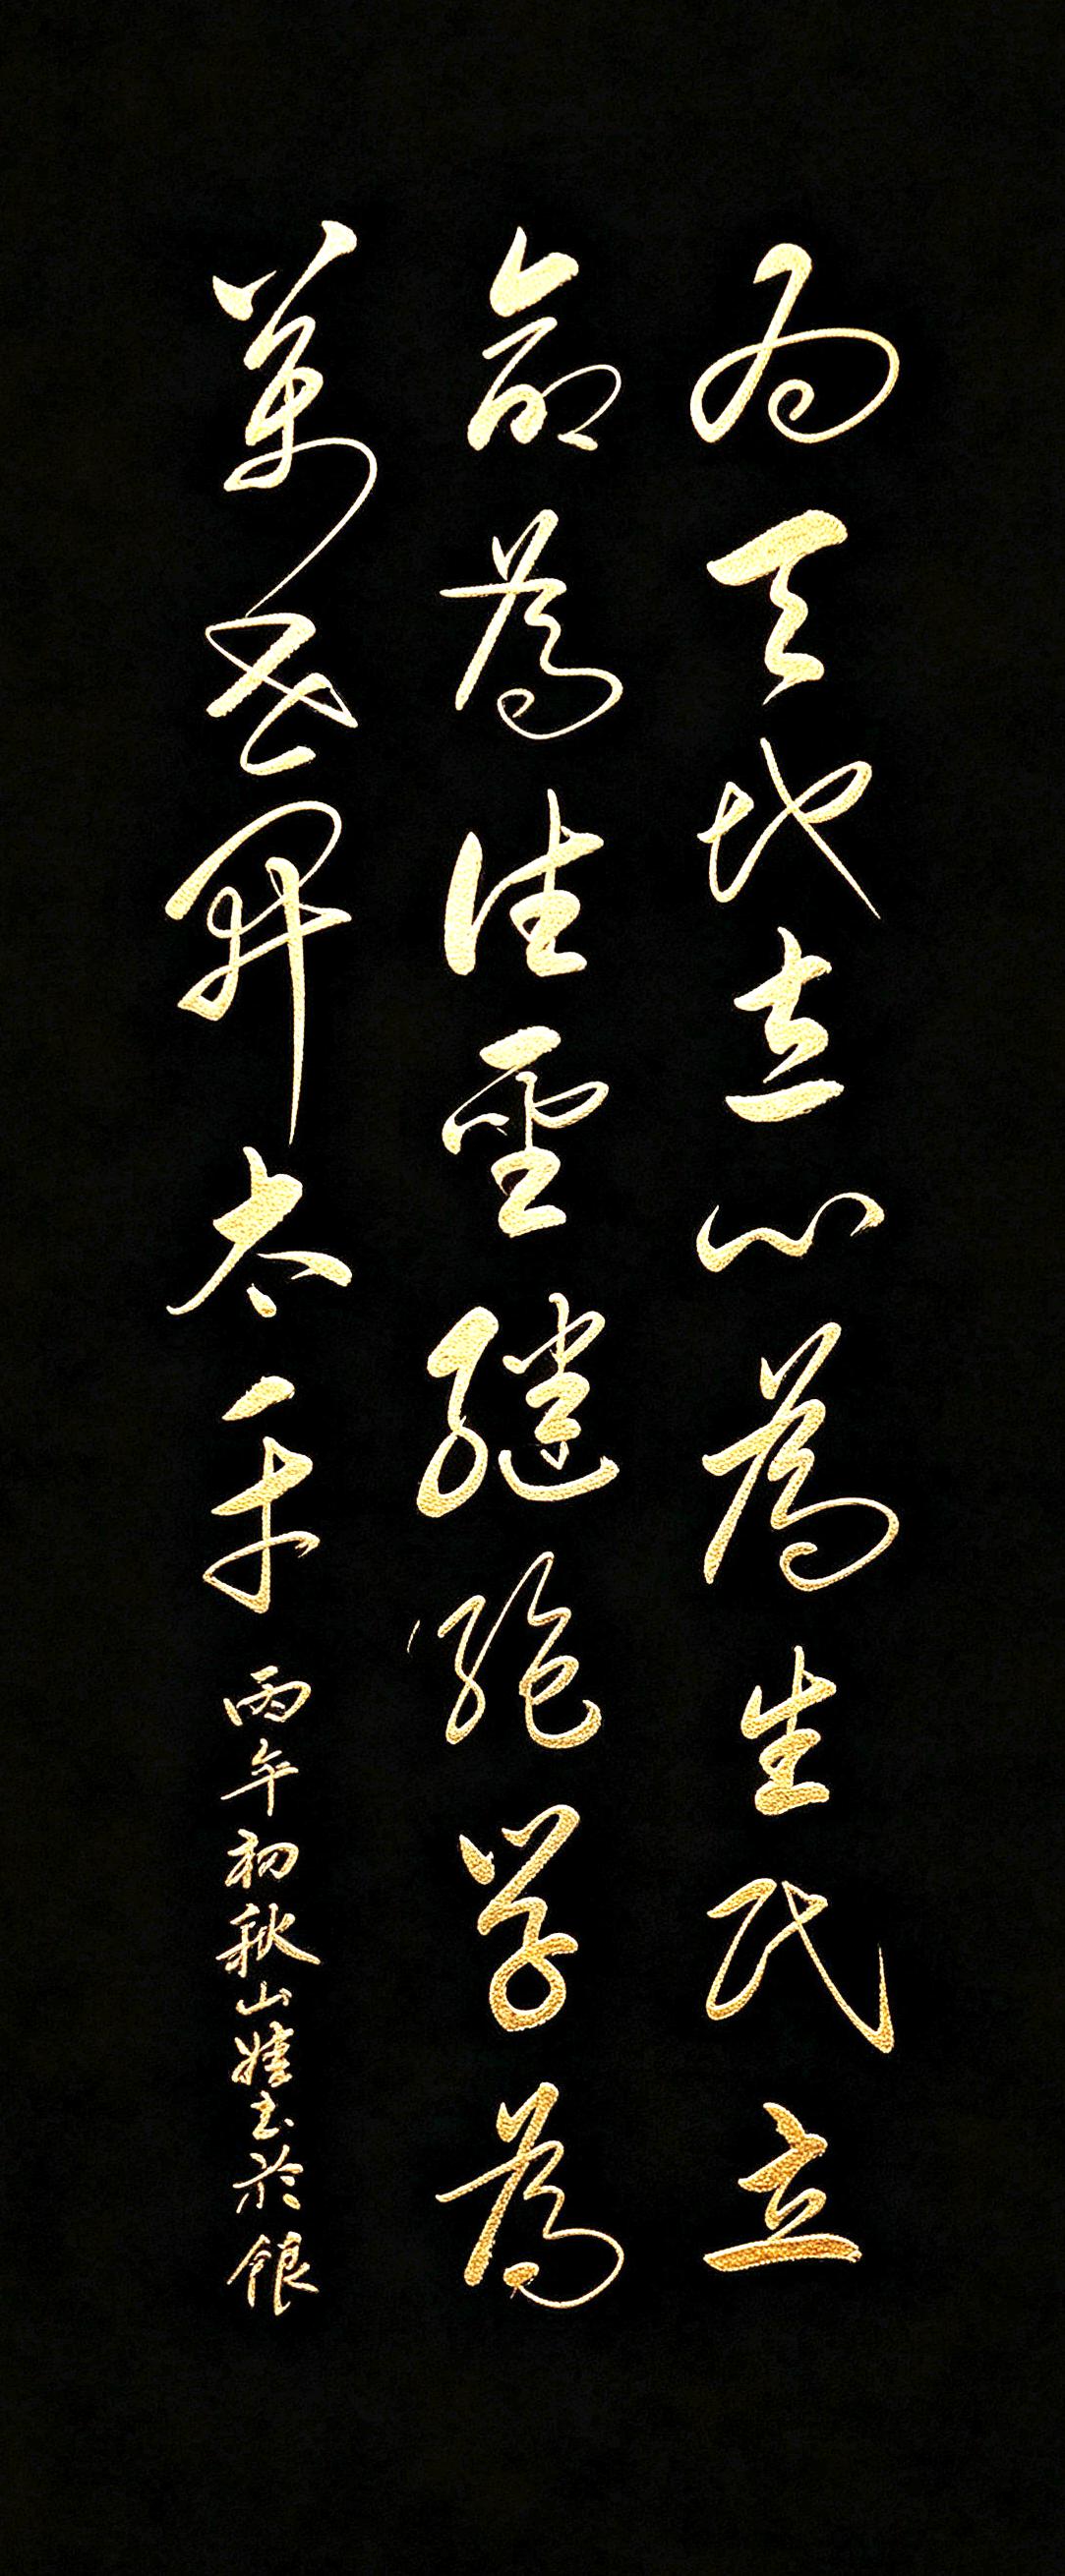 为天地立心為生民立
命為往聖継絶学為
萬世開太平
丙午初秋山娃书於銀